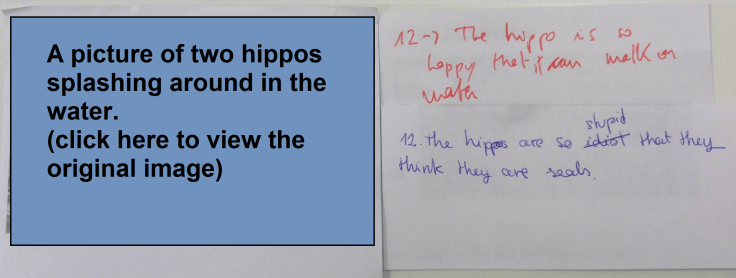 A picture of two hippos
splashing around in the
water.
(click here to view the
original image)
12→ The hippo is so
happy that it can walk on
water
stupid
12. The hippos are so idiot that they
think they are seals.